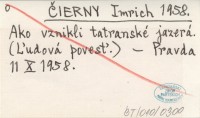 o ČIERNY Imrich 1958.
Ako vznikli tatranské jazerá.
(Ľudová povesť.) – Pravda
11 X 1958.
BT/010/0300